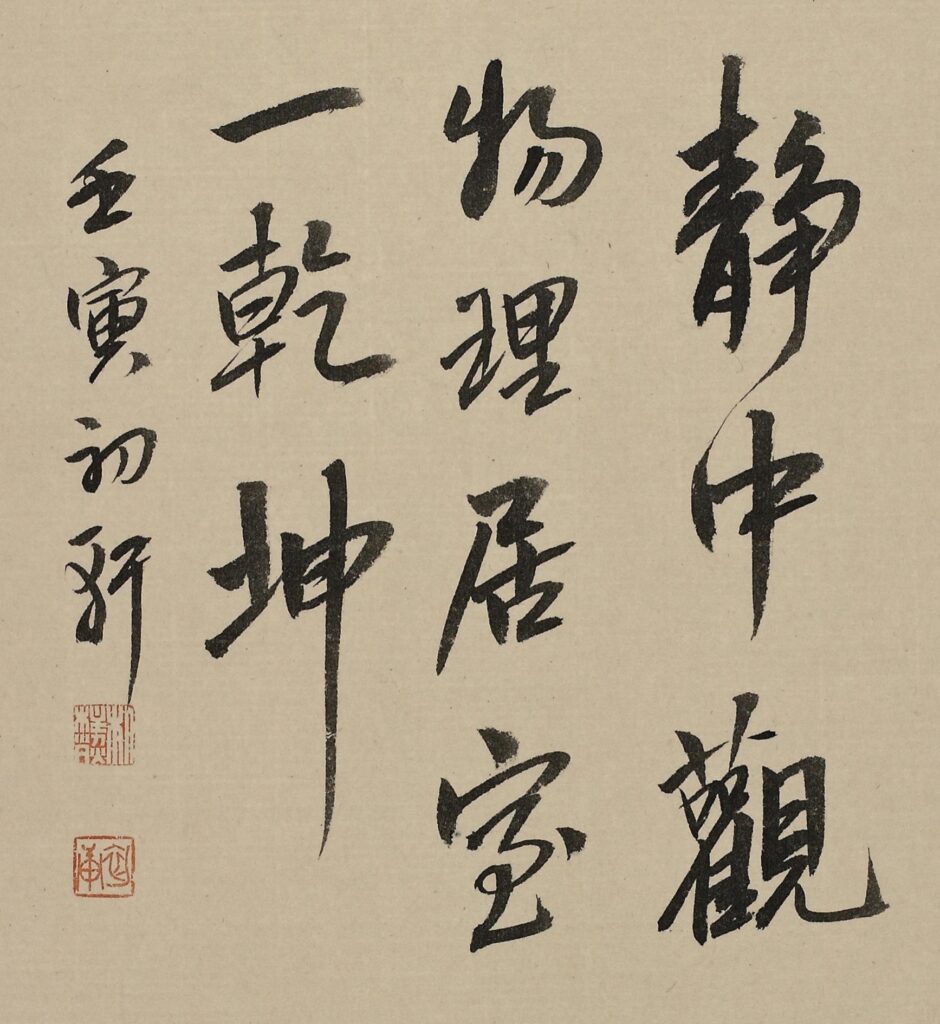 靜中觀
物理居室
一乾坤
壬寅初軒